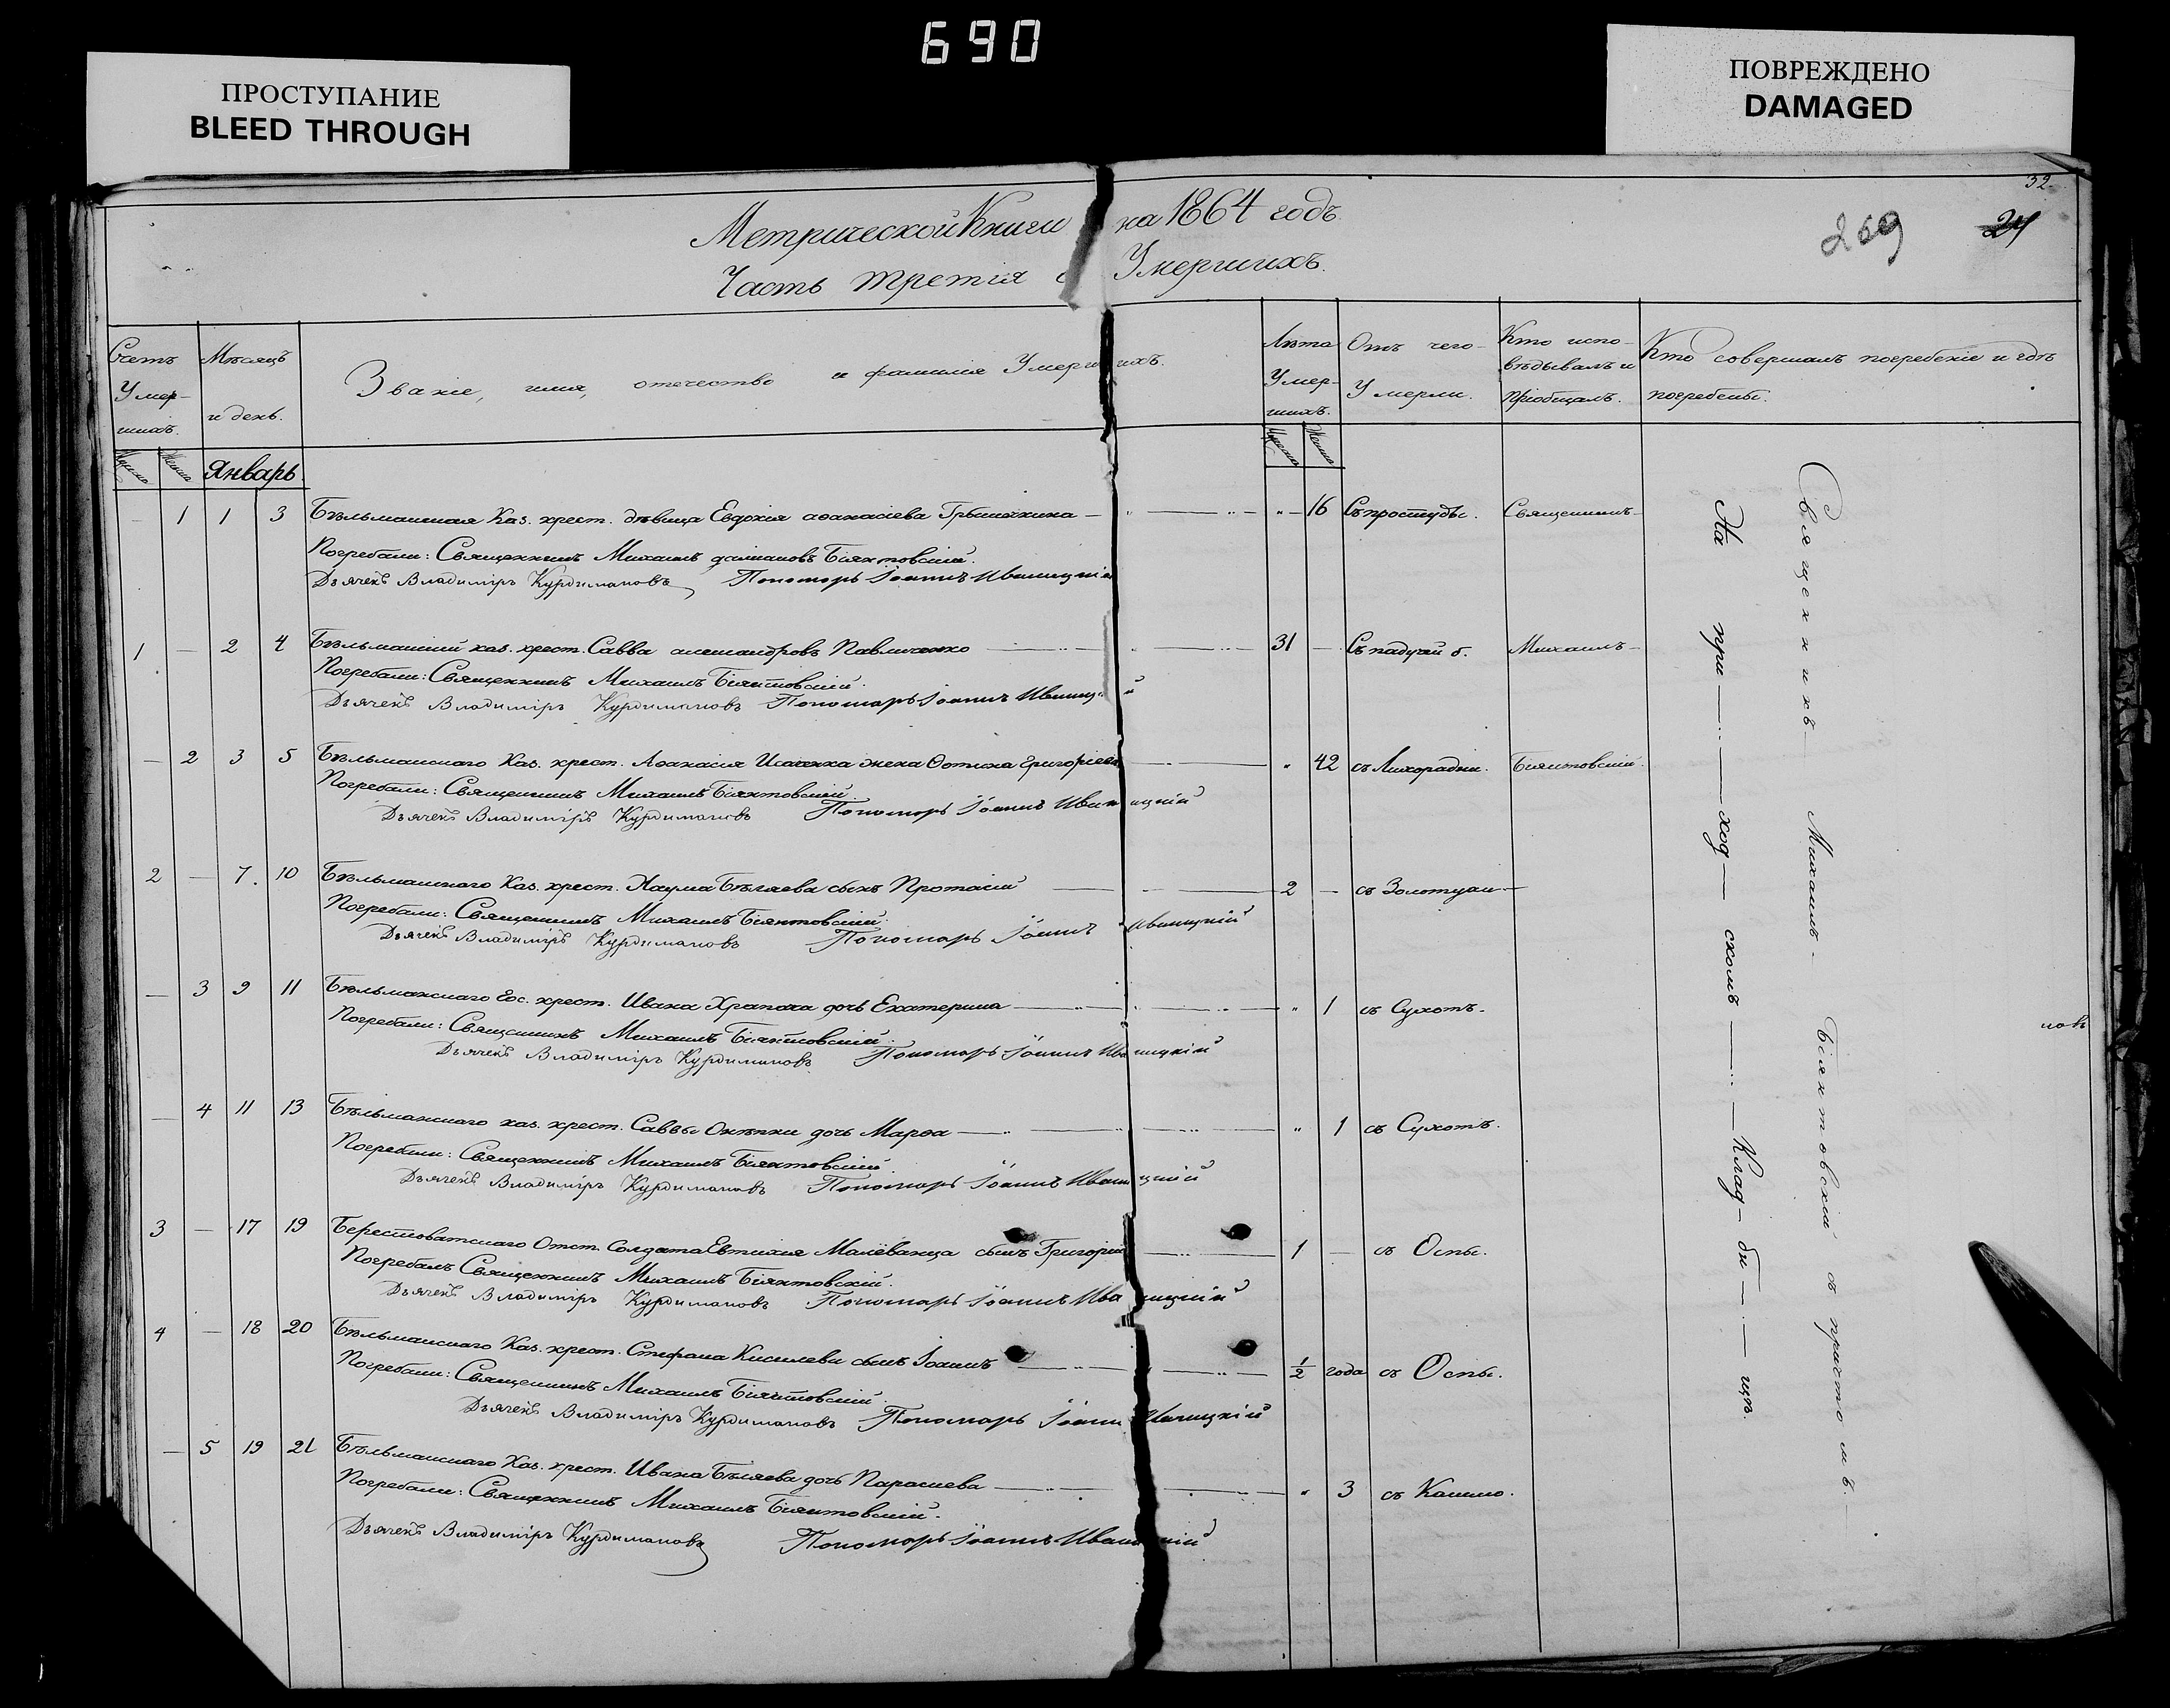 690
ПРОСТУПАНИЕ
BLEED THROUGH
ПОВРЕЖДЕНО
DAMAGED
32.
269 24
Метрической Книги на 1864 годъ.
Часть третія о Умершихъ.
Счетъ Умер-шихъ.
Мѣсяцъ и день.
Званіе, имя, отечество и фамилія Умершихъ.
Лѣта Умер-шихъ.
Отъ чего Умерли.
Кто испо-вѣдывалъ и пріобщалъ.
Кто совершалъ погребеніе и гдѣ погребены.
Январь
– 1 1 3 Бѣльманская Каз. хрест. дѣвица Евдокія аѳанасіева – " – 16 Съ простуды. Священникъ
Погребали: Священникъ Михаилъ Біянтовскій.
Дьячекъ Владиміръ Курдимановъ Пономарь Іоаннъ Иваницкій
1 – 2 4 Бѣльманскій каз. хрест. Савва александровъ Павличенко – 31 – Съ падучей б. Михаилъ
Погребали: Священникъ Михаилъ Біянтовскій.
Дьячекъ Владиміръ Курдимановъ Пономарь Іоаннъ Иваницкій
– 2 3 5 Бѣльманскаго Каз. хрест. Аѳанасія Исаченка жена Фотина Григоріева – " 42 съ Лихорадки. Біянтовскій.
Погребали: Священникъ Михаилъ Біянтовскій.
Дьячекъ Владиміръ Курдимановъ Пономарь Іоаннъ Иваницкій
2 – 7. 10 Бѣльманскаго Каз. хрест. Наума Бѣляева сынъ Протасій – 2 – съ Золотухи –
Погребали: Священникъ Михаилъ Біянтовскій.
Дьячекъ Владиміръ Курдимановъ Пономарь Іоаннъ Иваницкій
– 3 9 11 Бѣльманскаго Гос. хрест. Ивана Храпача дочь Екатерина – " 1 съ Сухотъ.
Погребали: Священникъ Михаилъ Біянтовскій.
Дьячекъ Владиміръ Курдимановъ Пономарь Іоаннъ Иваницкій
– 4 11 13 Бѣльманскаго каз. хрест. Саввы дочь Марѳа – " 1 съ Сухотъ.
Погребали: Священникъ Михаилъ Біянтовскій
Дьячекъ Владиміръ Курдимановъ Пономарь Іоаннъ Иваницкій
3 – 17 19 Берестоватскаго Отст. Солдата Евтихія Малёванца сынъ Григорій – 1 – съ Оспы.
Погребалъ Священникъ Михаилъ Біянтовскій.
Дьячекъ Владиміръ Курдимановъ Пономарь Іоаннъ Иваницкій
4 – 18 20 Бѣльманскаго Каз. хрест. Стефана Киселева сынъ Іоаннъ – 1/2 года съ Оспы.
Погребали: Священникъ Михаилъ Біянтовскій.
Дьячекъ Владиміръ Курдимановъ Пономарь Іоаннъ Иваницкій
– 5 19 21 Бѣльманскаго Каз. хрест. Ивана Бѣляева дочь Параскева – " 3 съ Кашлю.
Погребали: Священникъ Михаилъ Біянтовскій.
Дьячекъ Владиміръ Курдимановъ Пономарь Іоаннъ Иваницкій
Священникъ Михаилъ Біянтовскій съ причтомъ.
На при – ход – скомъ – Клад – би – щѣ.